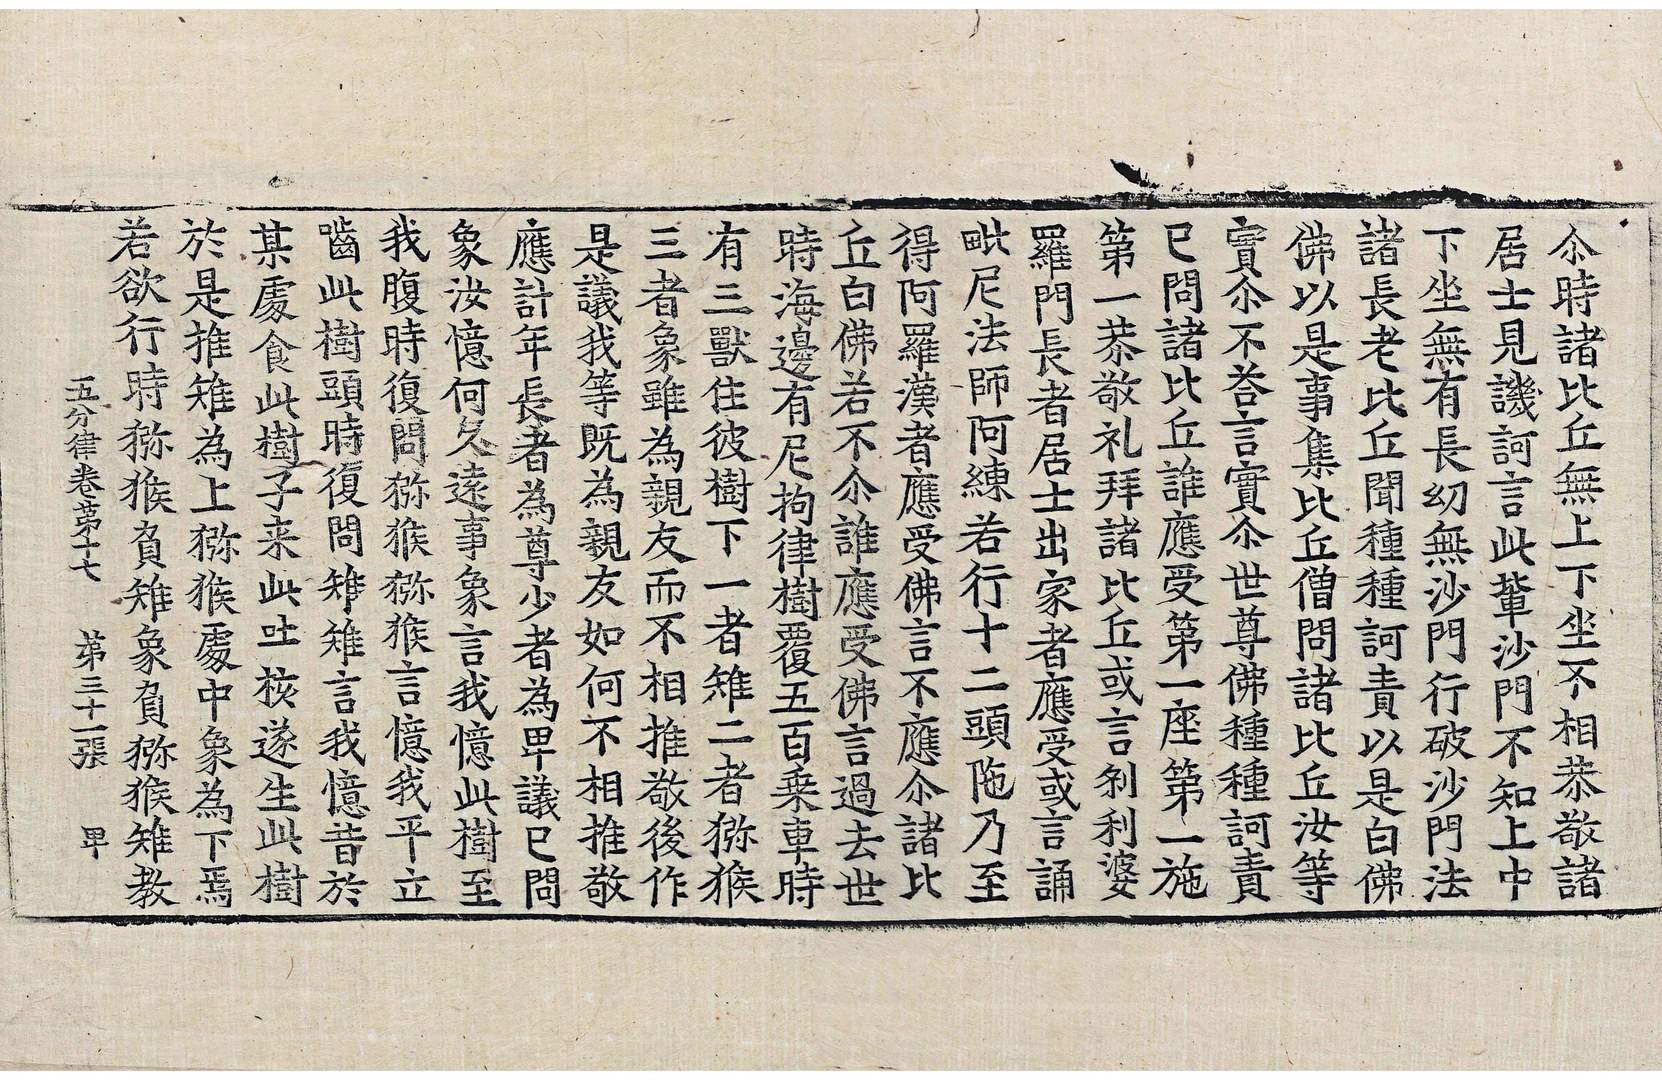 尒時諸比丘無上下坐不相恭敬諸
居士見譏訶言此輩沙門不知上中
下坐無有長幼無沙門行破沙門法
諸長老比丘聞種種訶責以是白佛
佛以是事集比丘僧問諸比丘汝等
實尒不荅言實尒世尊佛種種訶責
已問諸比丘誰應受第一座第一施
第一恭敬礼拜諸比丘或言剎利婆
羅門長者居士出家者應受或言誦
毗尼法師阿練若行十二頭陁乃至
得阿羅漢者應受佛言不應尒諸比
丘白佛若不尒誰應受佛言過去世
時海邊有尼拘律樹覆五百乗車時
有三獸住彼樹下一者雉二者獼猴
三者象雖為親友而不相推敬後作
是議我等既為親友如何不相推敬
應計年長者為尊少者為卑議已問
象汝憶何久遠事象言我憶此樹至
我腹時復問獼猴獼猴言憶我平立
嚙此樹頭時復問雉雉言我憶昔於
某處食此樹子来此吐核遂生此樹
於是推雉為上獼猴處中象為下焉
若欲行時獼猴負雉象負獼猴雉教
五分律卷第十七 第三十一張 卑